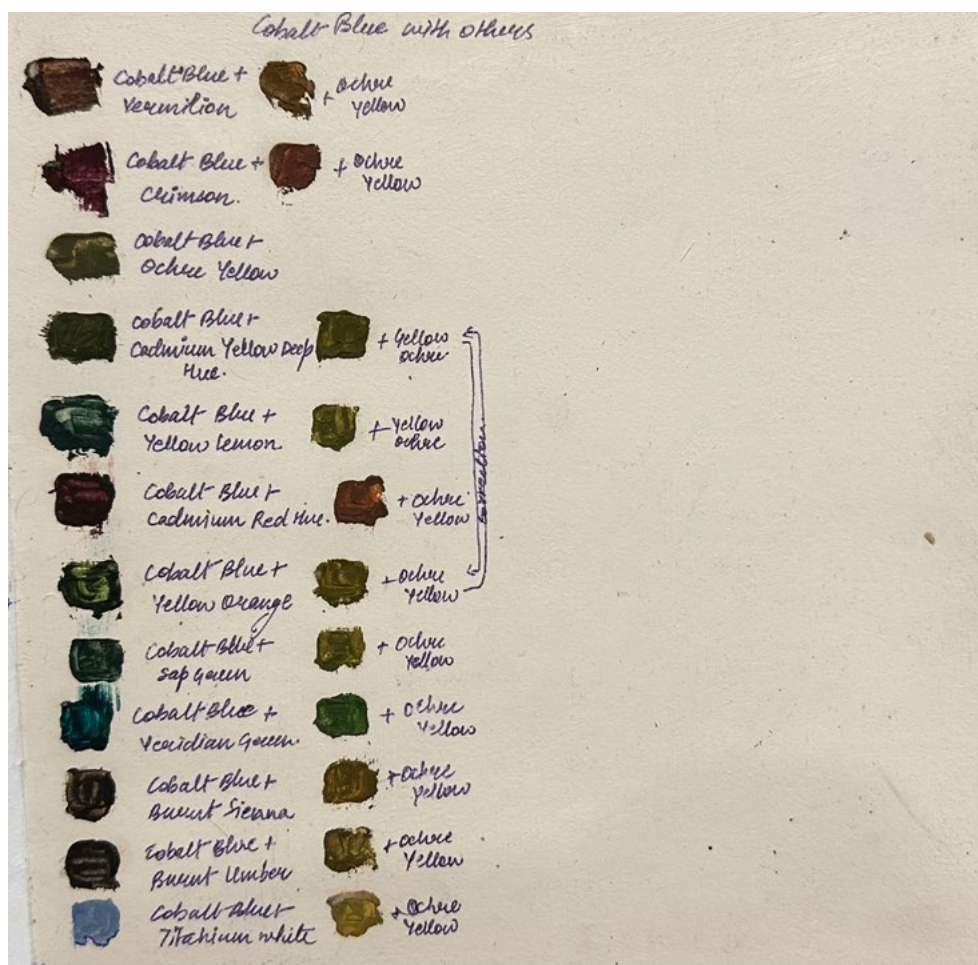 Cobalt Blue with others
Cobalt Blue +
Vermilion
+ Ochre
Yellow
Cobalt Blue +
Crimson.
+ Ochre
Yellow
Cobalt Blue +
Ochre Yellow
Cobalt Blue +
Cadmium Yellow Deep
Hue.
+ Yellow
Ochre
Cobalt Blue +
Yellow Lemon
+ Yellow
Ochre
Cobalt Blue +
Cadmium Red Hue.
+ Ochre
Yellow
Correction
Cobalt Blue +
Yellow Orange
+ Ochre
Yellow
Cobalt Blue +
Sap Green
+ Ochre
Yellow
Cobalt Blue +
Veridian Green.
+ Ochre
Yellow
Cobalt Blue +
Burnt Sienna
+ Ochre
Yellow
Cobalt Blue +
Burnt Umber
+ Ochre
Yellow
Cobalt Blue +
Titanium white
+ Ochre
Yellow